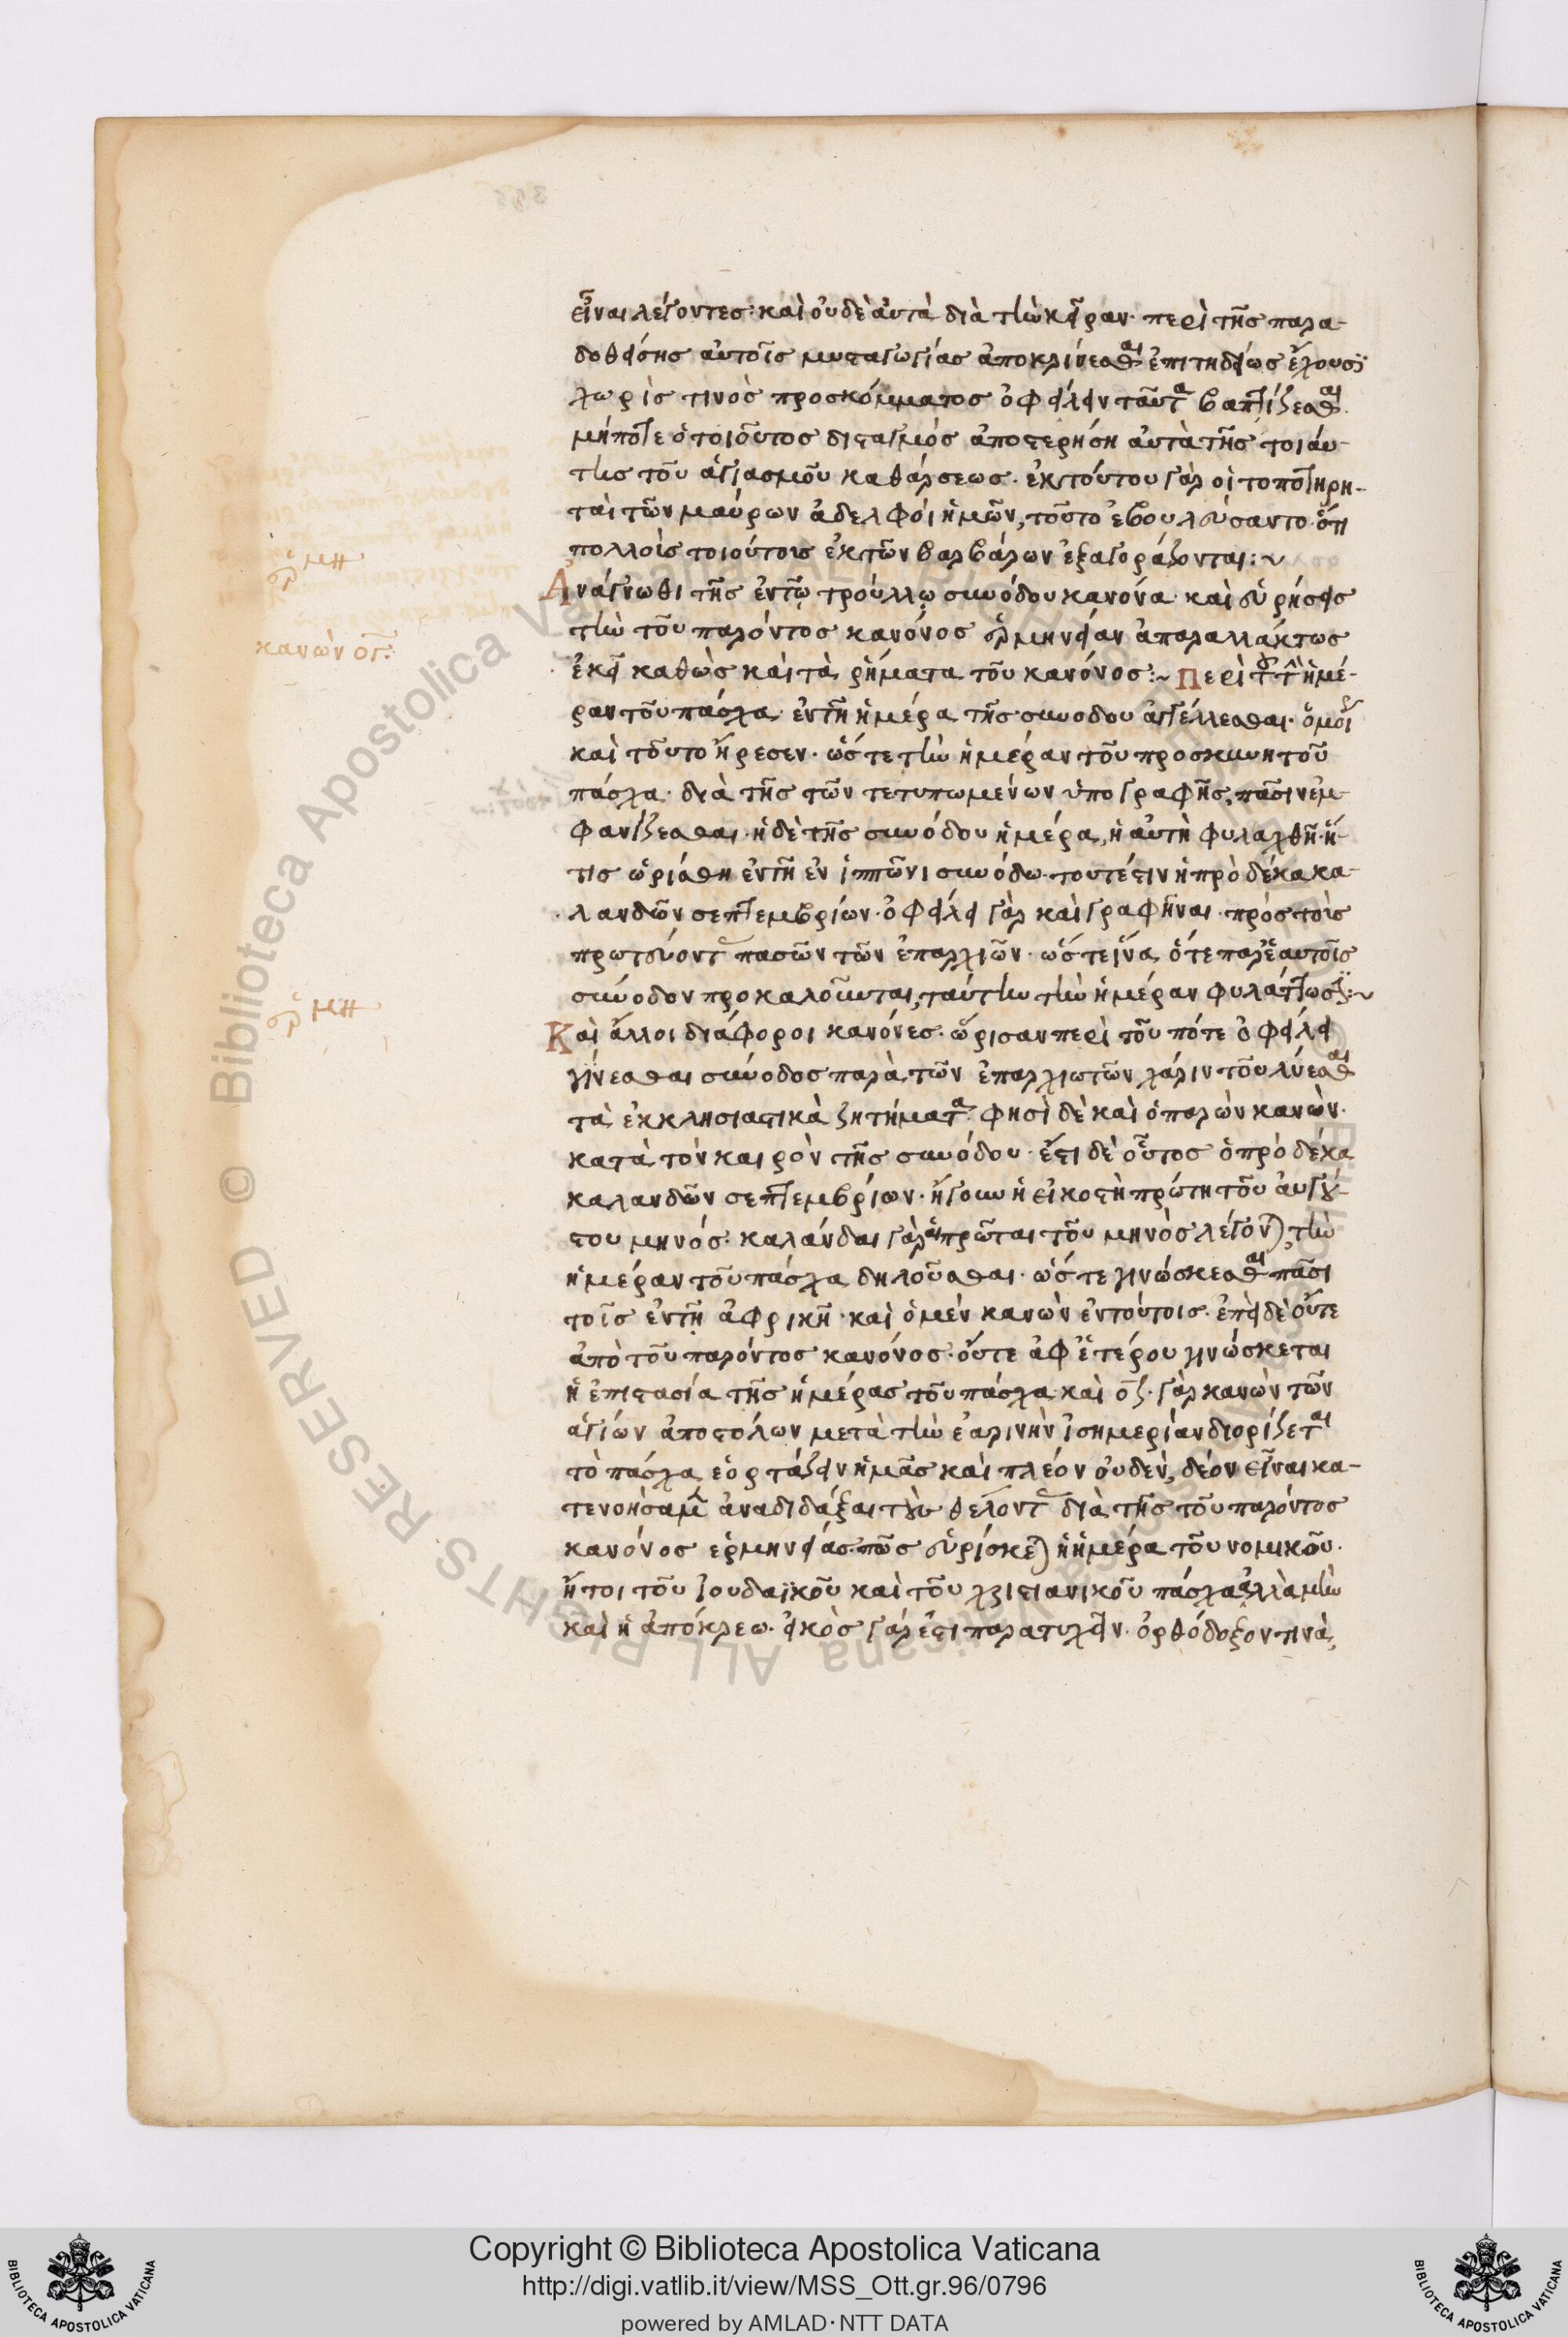 εἶναι λέγοντες· καὶ οὐδὲ αὐτὰ διὰ τὴν κείραν· περὶ τῆς παρα-
δοθείσης αὐτοῖς μυσταγωγίας ἀποκρίνεσθαι ἐπιτηδείως ἔχουσι
χωρίς τινος προσκόμματος ὀφείλειν ταῦτα βαπτίζεσθαι
μήποτε ὁ τοιοῦτος δισταγμός ἀποστερήση αὐτὰ τῆς τοιαύ-
της τοῦ ἁγιασμοῦ καθάρσεως. ἐκ τούτου γὰρ οἱ τοποτηρη-
ταὶ τῶν μαύρων ἀδελφοί ἡμῶν, τοῦτο ἐβουλεύσαντο· ὅτι
πολλοὶς τοιούτοις ἐκ τῶν βαρβάρων ἐξαγοράζονται:~
ἑρμη
Ἀνάγνωθι τῆς ἐν τῷ τρούλλῳ συνόδου κανόνα· καὶ εὑρήσεις
τὴν τοῦ παρόντος κανόνος ἑρμηνείαν ἀπαραλλάκτως
κανὼν ογ:
ἐκεῖ καθὼς καὶ τὰ ῥήματα τοῦ κανόνος:~ Περὶ τοῦ τὴν ἡμέ-
ραν τοῦ πάσχα· ἐν τῆ ἡμέρα τῆς συνοδου ἀγγέλλεσθαι· ὁμοί
καὶ τοῦτο ἤρεσεν· ὥστε τὴν ἡμέραν τοῦ προσκυνητοῦ
πάσχα· διὰ τῆς τῶν τετυπωμένων ὑπογραφῆς, πᾶσιν ἐμ
φανίζεσθαι· ἡ δὲ τῆς συνόδου ἡμέρα, ἡ αὐτὴ φυλαχθῆ· ἥ-
τις ὡρίσθη ἐν τῆ ἐν ἱππῶνι συνόδω· τουτέστιν ἡ πρὸ δέκα κα-
λανδῶν σεπτεμβρίων· ὀφείλει γὰρ καὶ γραφῆναι· πρὸς τοὶς
πρωτεύοντ πασῶν τῶν ἐπαρχιῶν· ὥστε ἵνα, ὅτε παρ' ἑαυτοῖς
σύνοδον προκαλοῦνται, ταύτην τὴν ἡμέραν φυλάττωσι:~
ἑρμη
Καὶ ἄλλοι διάφοροι κανόνες· ὥρισαν περὶ τοῦ πότε ὀφείλει
γίνεσθαι σύνοδος παρὰ τῶν ἐπαρχιωτῶν χάριν τοῦ λύεσθαι
τὰ ἐκκλησιαστικὰ ζητήματα· φησὶ δὲ καὶ ὁ παρὼν κανὼν·
κατὰ τὸν καιρὸν τῆς συνόδου· ἔστι δὲ οὗτος ὁ πρὸ δέκα
καλανδῶν σεπτεμβρίων· ἤγουν ἡ εἰκοστὴ πρώτη τοῦ αὐγού-
στου μηνός· καλάνδαι γὰρ αἱ πρῶται τοῦ μηνὸς λέγονται, τὴν
ἡμέραν τοῦ πάσχα δηλοῦσθαι· ὥστε γινώσκεσθαι πᾶσι
τοῖς ἐν τῇ ἀφρικῇ· καὶ ὁ μὲν κανὼν ἐν τούτοις· ἐπεὶ δὲ οὔτε
ἀπὸ τοῦ παρόντος κανόνος· οὔτε ἀφ' ἑτέρου γινώσκεται
ἡ ἐπιστασία τῆς ἡμέρας τοῦ πάσχα καὶ ὁ ζ· γὰρ κανὼν τῶν
ἁγίων ἀποστόλων μετὰ τὴν ἐαρινὴν ἰσημερίαν διορίζεται
τὸ πάσχα, ἑορτάζειν ἡμᾶς καὶ πλέον οὐδὲν, δέον εἶναι κα-
τενοήσαμεν ἀναδιδάξαι τοὺς θέλοντας διὰ τῆς τοῦ παρόντος
κανόνος ἑρμηνείας πῶς εὑρίσκεται ἡ ἡμέρα τοῦ νομικοῦ·
ἤτοι τοῦ ἰουδαϊκοῦ καὶ τοῦ χριστιανικοῦ πάσχα ἀλλὰ μὴν
καὶ ἡ ἀπόκρεω· εἰκὸς γάρ ἐστι παρατυχεῖν· ὀρθόδοξον τινὰ,
Copyright © Biblioteca Apostolica Vaticana
http://digi.vatlib.it/view/MSS_Ott.gr.96/0796
powered by AMLAD·NTT DATA